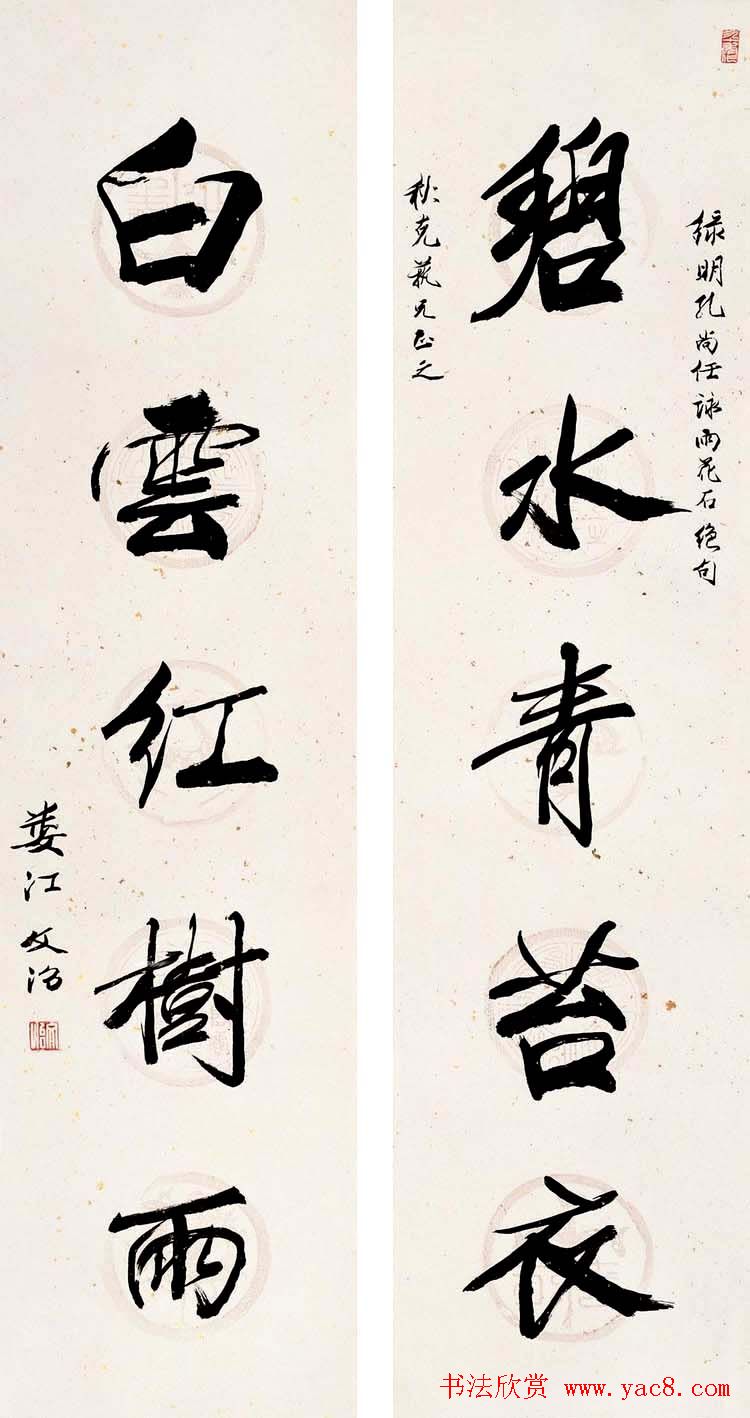 绿明孔尚任詠雨花石绝句
碧水青苔衣
秋克藝兄正之
白雲红樹雨
娄江文治
书法欣赏 www.yac8.com